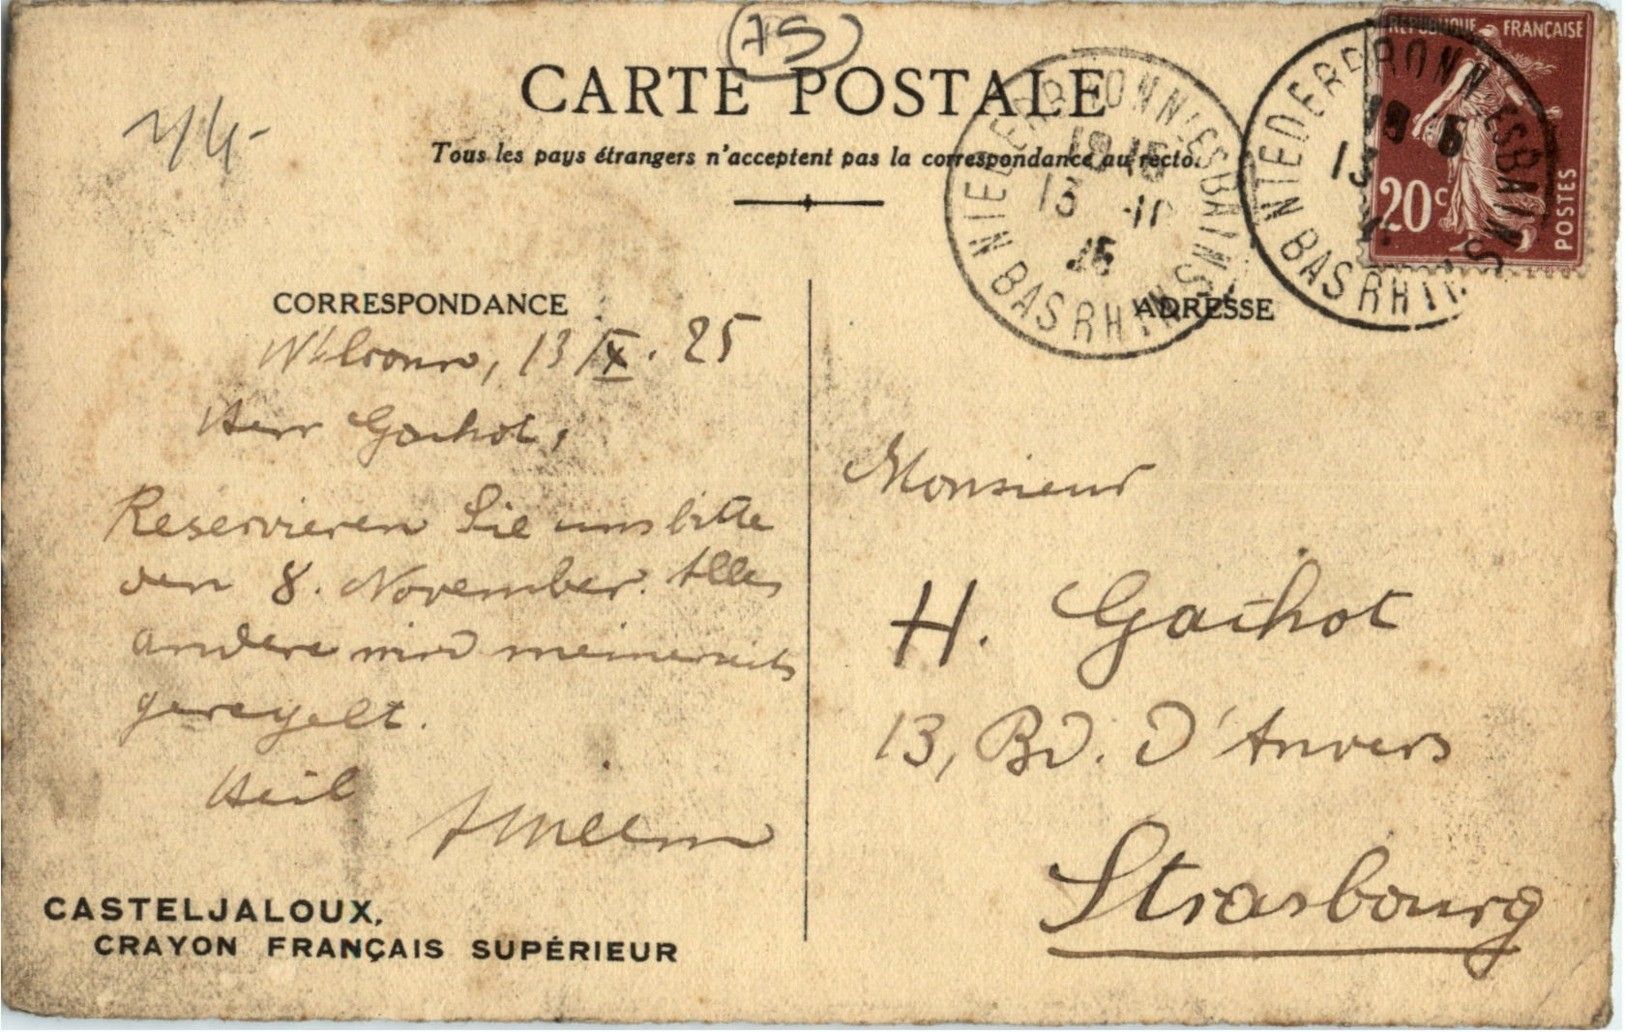 75
CARTE POSTALE
Tous les pays étrangers n'acceptent pas la correspondance au recto.
NIEDERBRONN-LES-BAINS
BAS RHIN
13
NIEDERBRONN-LES-BAINS
BAS RHIN
13
RÉPUBLIQUE FRANÇAISE
20c
POSTES
CORRESPONDANCE
13/X. 25
Herr Gachot,
Reservieren Sie uns bitte
den 8. November. Alles
andere wird meinerseits
geregelt.
Heil
CASTELJALOUX,
CRAYON FRANÇAIS SUPÉRIEUR
ADRESSE
Monsieur
H. Gachot
13, Bd. d'Anvers
Strasbourg